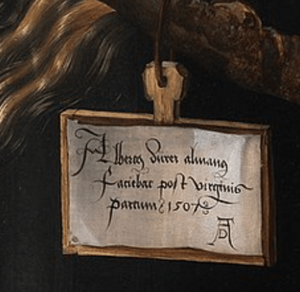 Albertus durer almanus
faciebat post virginis
partum 1507
AD